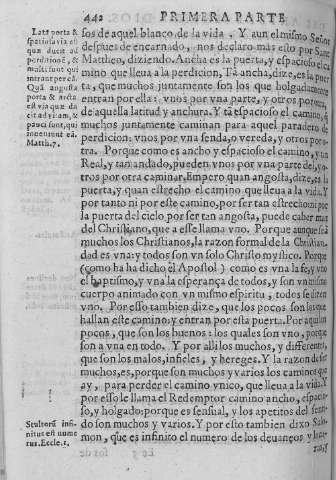 442 PRIMERA PARTE
Lata porta &
spatiosa via est
quæ ducit ad
perditionē, &
multi sunt qui
intrant per eā.
Quā angusta
porta & arcta
est via quæ du-
cit ad vitam, &
pauci sunt, qui
inueniunt eā.
Matth.7.
sos de aquel blanco de la vida. Y aun el mismo Señor
despues de encarnado, nos declaro mas esto por Sant
Mattheo, diziendo. Ancha es la puerta, y espacioso el ca
mino que lleua a la perdicion, Tā ancha, dize, es la
ta, que muchos juntamente son los que holgadamente
entran por ella: vnos por vna parte, y otros por otra,
de aquella latitud y anchura. Y tā espacioso el camino, q̄
muchos juntamente caminan para aquel paradero de
perdicion, vnos por vna senda, o vereda, y otros por
tra. Porque como es ancho y espacioso el camino, y
Real, y tan andado, pueden vnos por vna parte del, y o-
tros por otra caminar. Empero quan angosta, dize, es la
puerta, y quan estrecho el camino que lleua a la vida. Y
por tanto ni por este camino, por ser tan estrecho ni por
la puerta del cielo, por ser tan angosta, puede caber mas
del Christiano, que a esse llama vno. Porque aunque seā
muchos los Christianos, la razon formal de la Christian-
dad es vna: y todos son vn solo Christo mystico. Porque
(como ha ha dicho el Apostol) como es vna la fe, y vno
el baptismo, y vna la esperança de todos, y son vn mismo
cuerpo animado con vn mismo espiritu, todos se dizen
vno. Por esso tambien dize, que los pocos son los que
hallan este camino, y entran por esta puerta. Por aquellos
pocos, que son los buenos: los quales son vno, porque
son a vna en todo. Y por alli los muchos, y differentes,
que son los malos, infieles, y hereges. Y la razon de ser
muchos, es, porque son muchos y varios los caminos que
ay, para perder el camino vnico, que lleua a la vida. Y
por esso le llama el Redemptor camino ancho, espacio-
so, y holgado: porque es sensual, y los apetitos del senti-
do son muchos y varios. Y por esto tambien dixo Salo-
mon, que es infinito el numero de los
Stultorū infi-
nitus est nume
rus. Eccle.1.